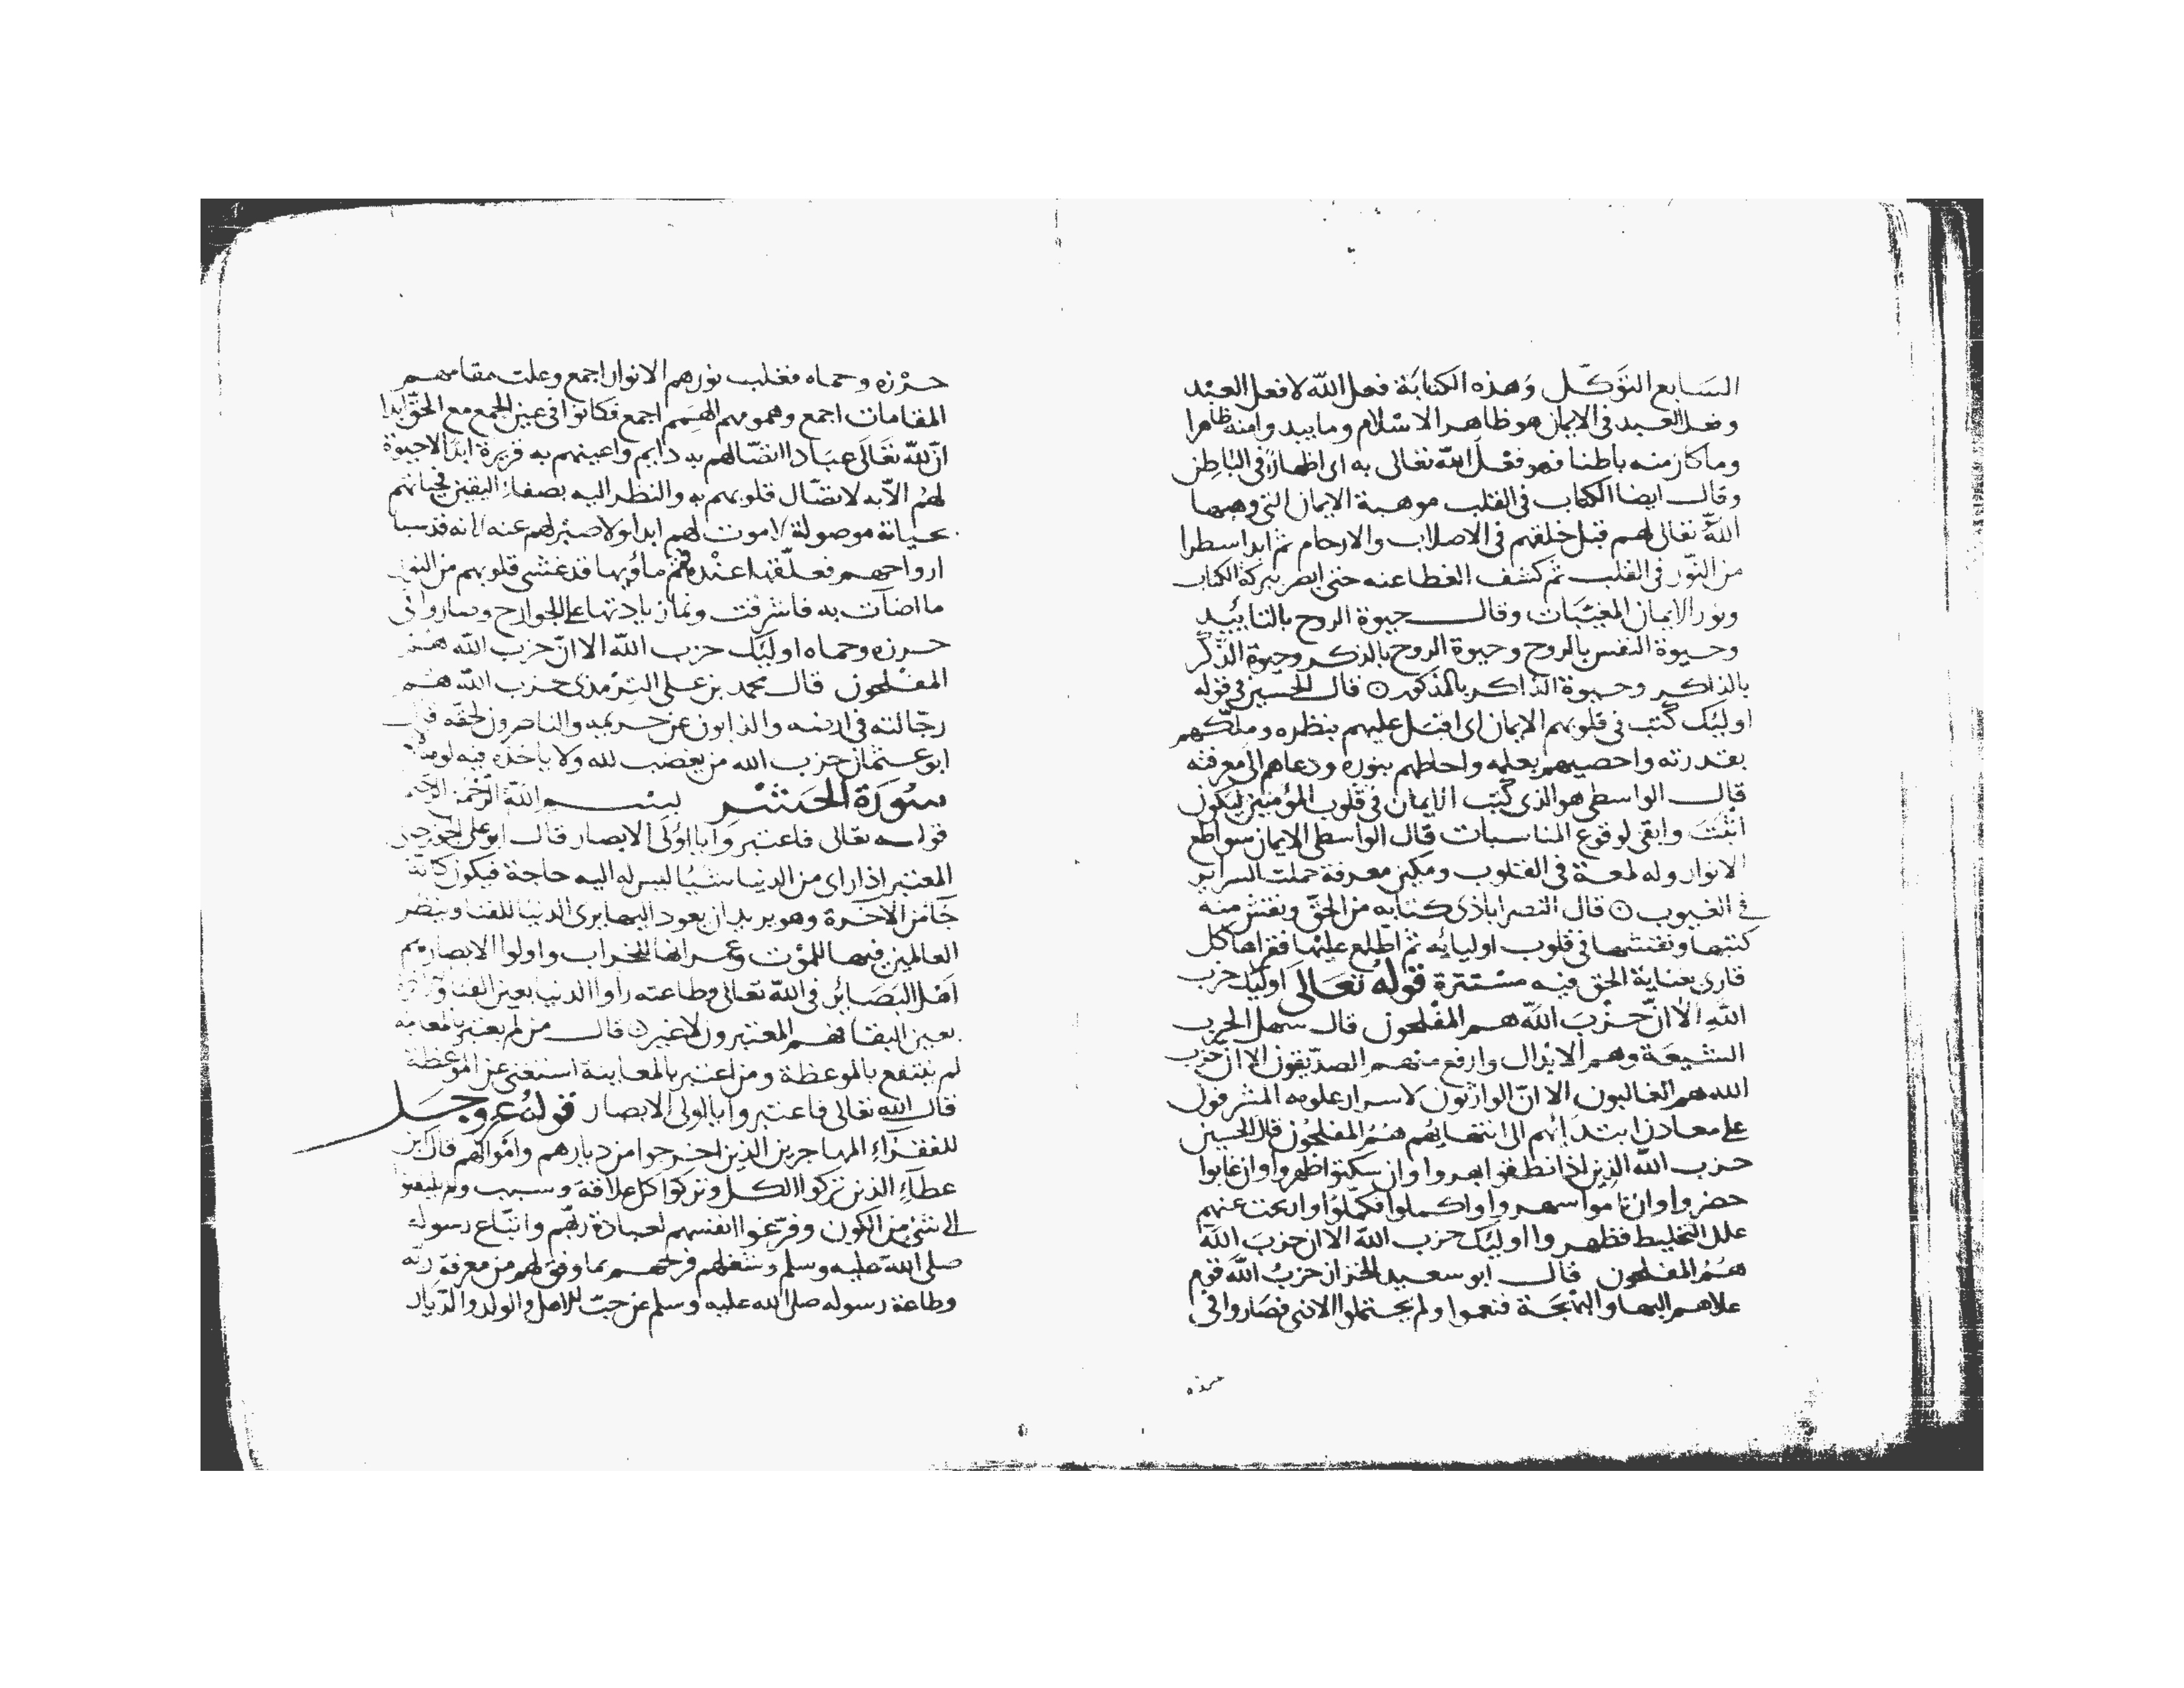 السابع التوكل وهذه الكتابة فعل الله لا فعل العبد
وفعل العبد في الايمان هو ظاهر الاسلام وما يبيد وامنه ظاهرا
وما كان منه باطنا فهو فعل الله تعالى به اى اظهارًا في الباطن
وقال ايضا الكتاب في القلب موهبة الايمان التي وهبها
الله تعالى لهم قبل خلقهم في الاصلاب والارحام ثم ابدا سطرا
من النور في القلب ثم كشف الغطا عنه حتى ابصر ببركة الكتاب
ونور الايمان المغيبات وقال حيوة الروح بالتاييد
وحيوة النفس بالروح وحيوة الروح بالذكر وحيوة الذكر
بالذاكر وحيوة الذاكر بالمذكور ٥ قال الحسين في قوله
اوليك كتب في قلوبهم الايمان اى اقبل عليهم بنظره وملكهم
بقدرته واحصيهم بعلمه واحاطهم بنوره ودعاهم الى معرفته
قال الواسطى هو الذي كتب الايمان في قلوب المؤمنين ليكون
اثبت وابقى لوقوع المناسبات قال الواسطى الايمان سواطع
الانوار وله لمعة في القلوب ومكين معرفة حملت السراير
في الغيوب ٥ قال النصراباذى كتابه من الحق ونقش منه
كتبها ونقشها في قلوب اوليايه ثم اطلع عليها فقراها كل
قارى بعناية الحق فيه مستترة قوله تعالى اوليك حزب
الله الا ان حزب الله هم المفلحون قال سهل الحزب
الشيعة وهم الابدال وارفع منهم الصديقون الا ان حزب
الله هم الغالبون الا ان الوارثون لاسرار علومه المشرفون
على معادن ابتدائهم الى انتهايهم هم المفلحون قال الحسين
حزب الله الذين اذا نطقوا بهروا وان سكتوا ظهروا وان غابوا
حضروا وان ناموا سهروا واكملوا فكملوا وازيحت عنهم
علل التخليط فظهروا اوليك حزب الله الا ان حزب الله
هم المفلحون قال ابو سعيد الخزاز حزب الله قوم
علاهم البها والبهجة فنعموا ولم يحتملوا الاذى فصاروا في
حرزه
حرزه وحماه فغلب نورهم الانوار اجمع وعلت مقامهم
المقامات اجمع وهمومهم الهمم اجمع فكانوا في عين الجمع مع الحق ابدا
ان لله تعالى عبادا اتصالهم به دايم واعينهم به قريرة ابدا لا حيوة
لهم الا به لاتصال قلوبهم به والنظر اليه بصفا اليقين فحياتهم
بحياته موصولة لا موت لهم ابدا ولا صبر لهم عنه لانه قد سبا
ارواحهم فعلقها عنده فثم ماويها قد غشى قلوبهم من النور
ما اضآت به فاشرقت ونما زيادتها على الجوارح وصاروا في
حرزه وحماه اوليك حزب الله الا ان حزب الله هم
المفلحون قال محمد بن على الترمذى حزب الله هم
رجالته في ارضه والذابون عن حريمه والناصرون لحقه قال
ابو عثمان حزب الله من يغضب لله ولا ياخذه فيه لومة
سورة الحشر بسم الله الرحمن الرحيم
قوله تعالى فاعتبروا يا اولى الابصار قال ابو على الجوزجانى
المعتبر اذا راى من الدنيا شيًا ليس له اليه حاجة فيكون كانه
جا من الآخرة وهو يريد ان يعود اليها يرى الدنيا للفنا وينظر
العالمين فيها للموت وعمرانها للخراب واولوا الابصار هم
اهل البصاير في الله تعالى وطاعته راوا الدنيا بعين الفنا والاخرة
بعين البقا فهم المعتبرون لا غير ٥ قال من لم يعتبر بالمعاينة
لم ينتفع بالموعظة ومن اعتبر بالمعاينة استغنى عن الموعظة
قال الله تعالى فاعتبروا يا اولى الابصار قوله عز وجل
للفقراء المهاجرين الذين اخرجوا من ديارهم واموالهم قال ابن
عطاء الذين تركوا الكل وتركوا كل علاقة وسبب ولم يلتفتوا
الى شئ من الكون وفرغوا انفسهم لعبادة ربهم واتباع رسوله
صلى الله عليه وسلم وشغلهم فرحهم بما وفق لهم من معرفة ربه
وطاعة رسوله صلى الله عليه وسلم عن حب الاهل والولد والديار